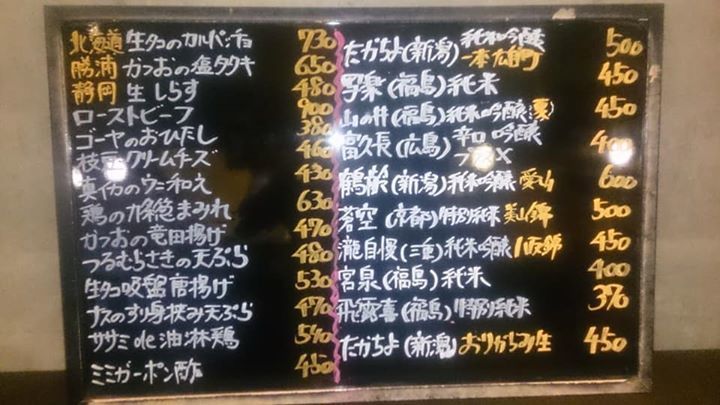 北海道 生タコのカルパッチョ 730
勝浦 かつおの塩タタキ 650
静岡 生しらす 480
ローストビーフ 900
ゴーヤのおひたし 380
枝豆クリームチーズ 460
真イカのウニ和え 430
鶏の 630
かつおの竜田揚げ 470
つるむらさきの天ぷら 480
生タコ吸盤唐揚げ 530
ナスのすり身挟み天ぷら 470
ササミde油淋鶏 540
ミミガーポン酢 450
たかちよ(新潟)純米吟醸 500
写楽(福島)純米 450
山の井(福島)純米吟醸(夏) 450
富久長(広島)辛口 吟醸 400
鶴齢(新潟)純米吟醸 愛山 600
蒼空(京都)特別純米 美山錦 500
瀧自慢(三重)純米吟醸 八反錦 450
宮泉(福島)純米 400
飛露喜(福島)特別純米 370
たかちよ(新潟)おりがらみ生 450